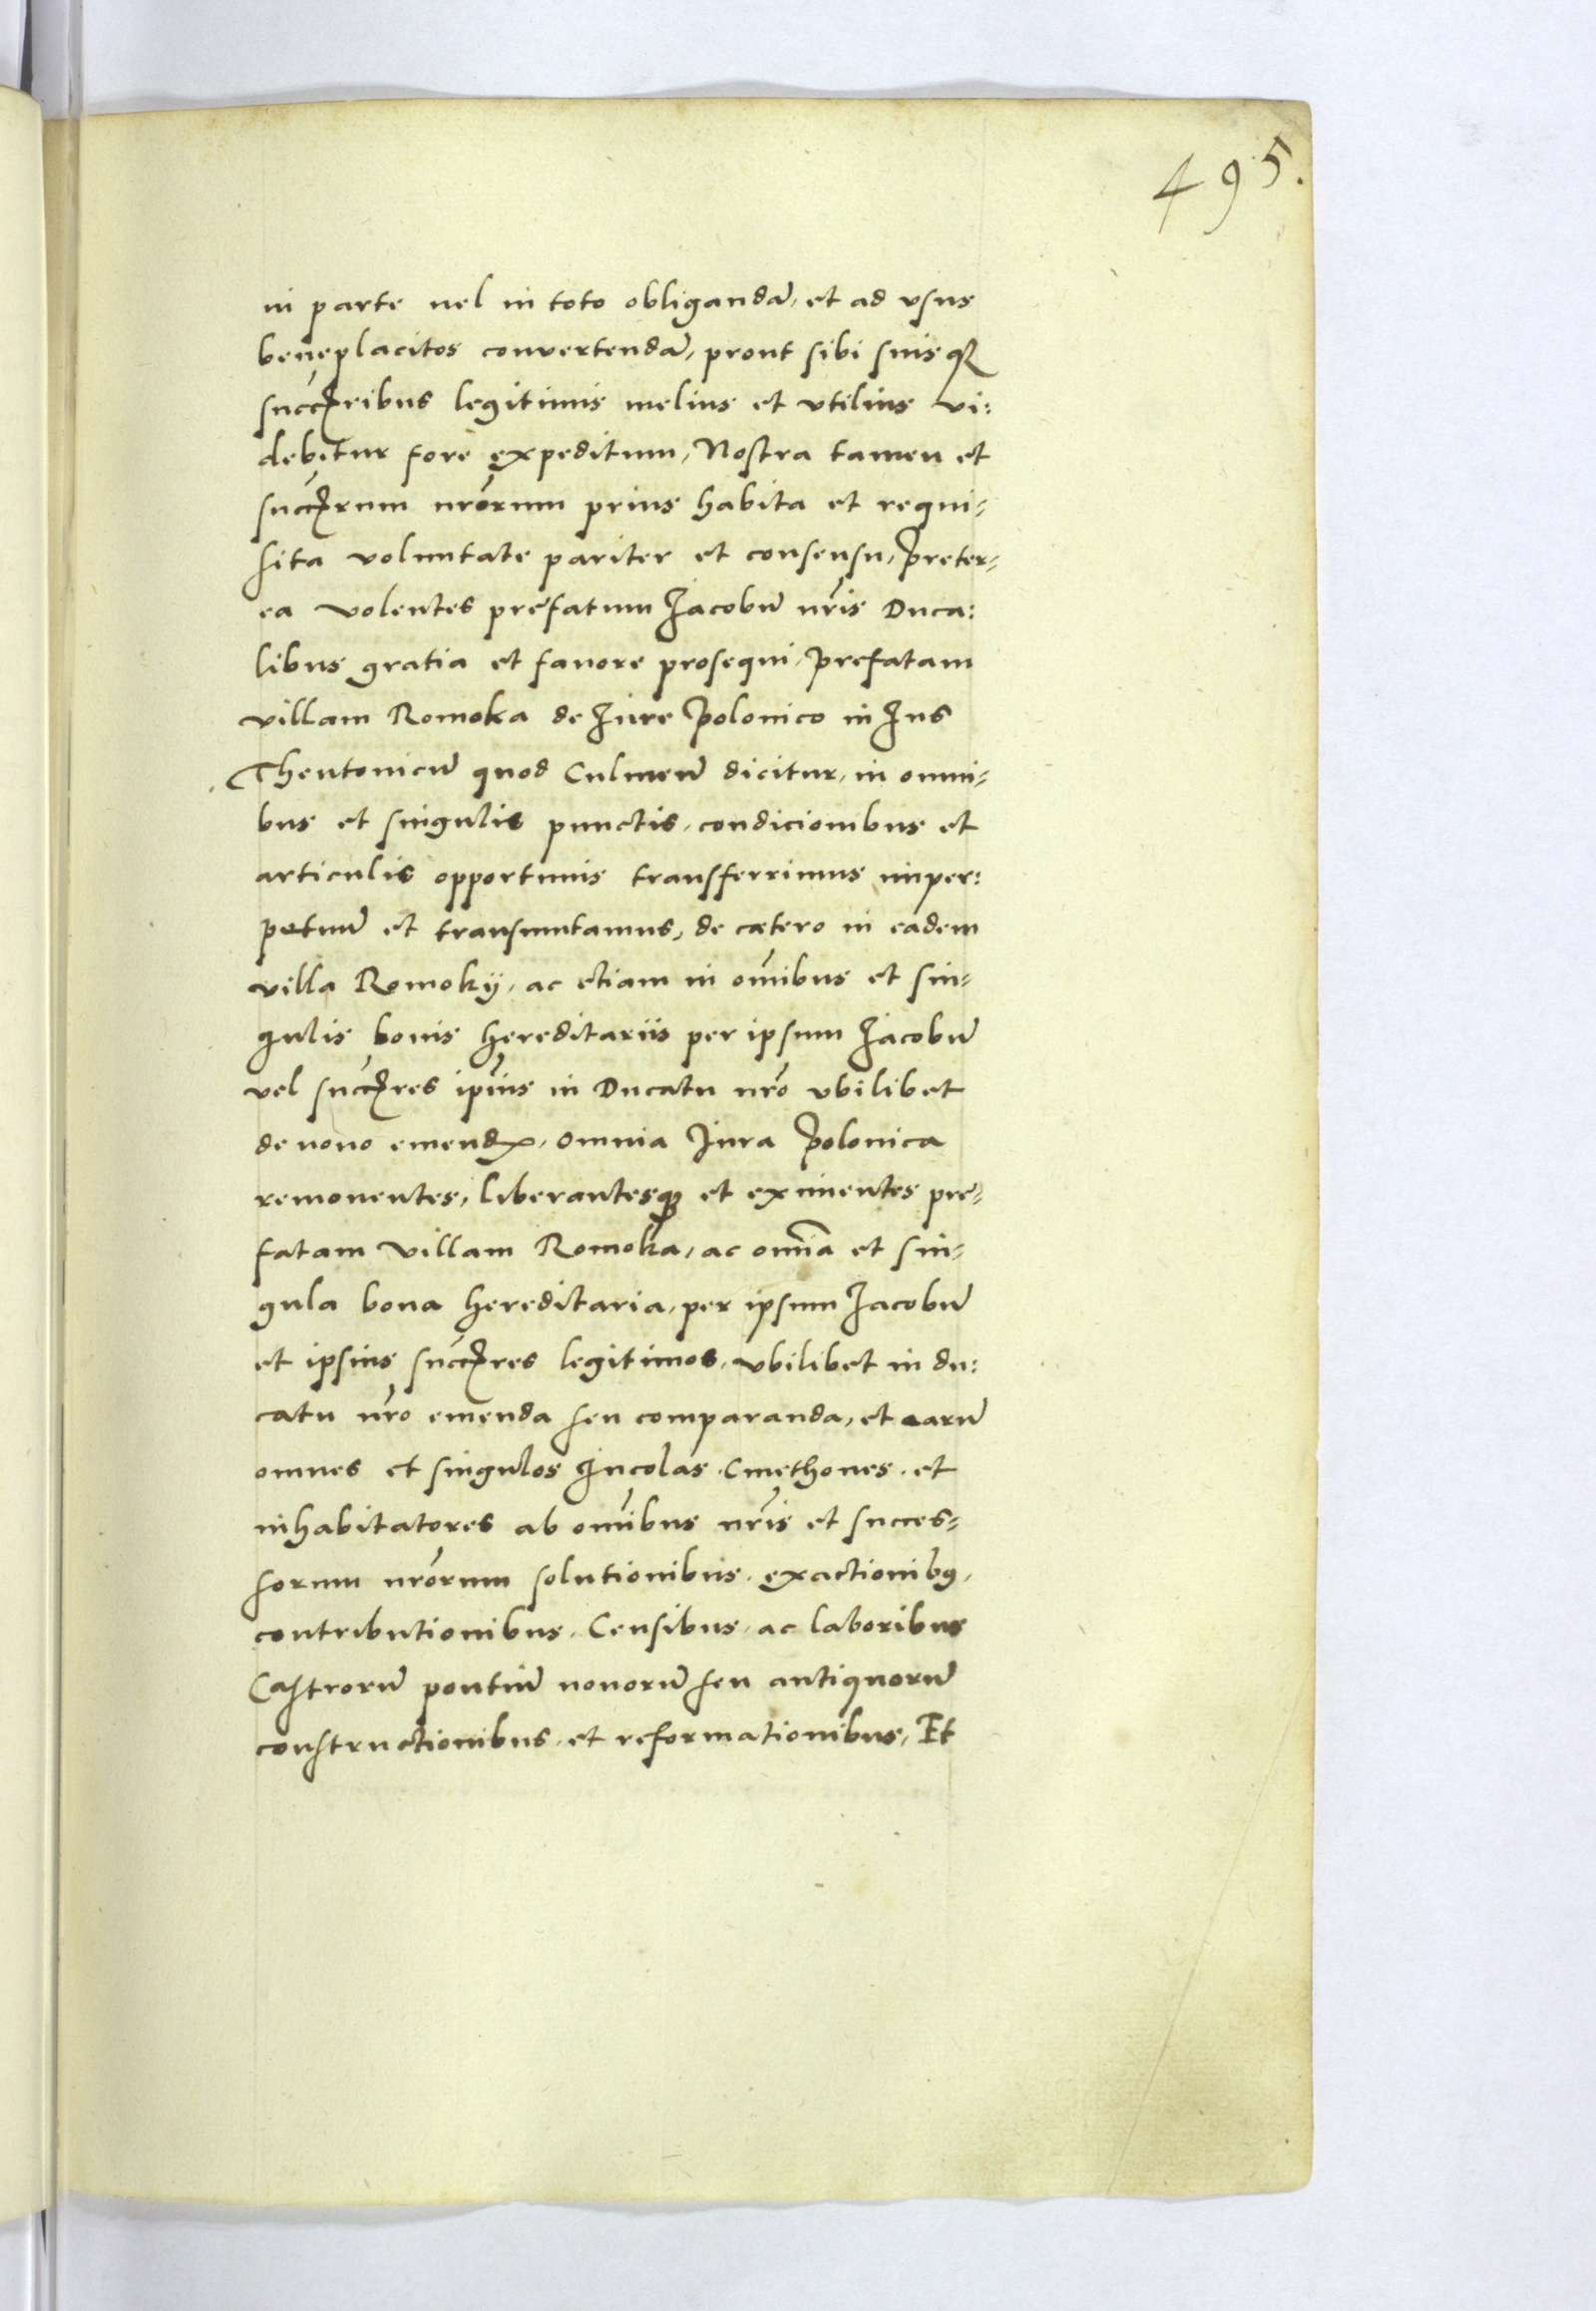 495.
in parte uel in toto obligandā, et ad vsus
beneplacitos convertendā, prout sibi suisq3
succ̄ribus legitimis melius et vtilius vi:
debitur fore expeditum, Nostra tamen et
succ̄rum nr̄orum prius habita et requi-
sita voluntate pariter et consensu, Preter-
ea volentes prefatum Jacobū nr̄is Duca:
libus gratia et fauore prosequi, prefatam
villam Romoka de Jure Polonico in Jus
Theutonicū quod Culmen̄ dicitur, in omni-
bus et singulis punctis, condicionibus et
articulis opportunis transferrimus imper:
petuū et transmutamus, de cætero in eadem
villa Romoky, ac etiam in om̄ibus et sin-
gulis bonis hereditariis per ipsum Jacobū
vel succ̄res ip̄ius in Ducatu nr̄o vbilibet
de nouo emend, omnia Jura Polonica
remouentes, liberantesq3 et eximentes pre-
fatam villam Romoka, ac om̄ia et sin-
gula bona hereditaria, per ipsum Jacobū
et ipsius succ̄res legitimos, vbilibet in du:
catu nr̄o emenda seu comparanda, et earū
omnes et singulos Jncolas. Cmethones. et
inhabitatores ab om̄ibus nr̄is et succes-
sorum nr̄orum solutionibus. exactionib9,
contributionibus. Censibus. ac laboribus
Castrorū pontiū nouorū seu antiquorū
constructionibus. et reformationibus, Et